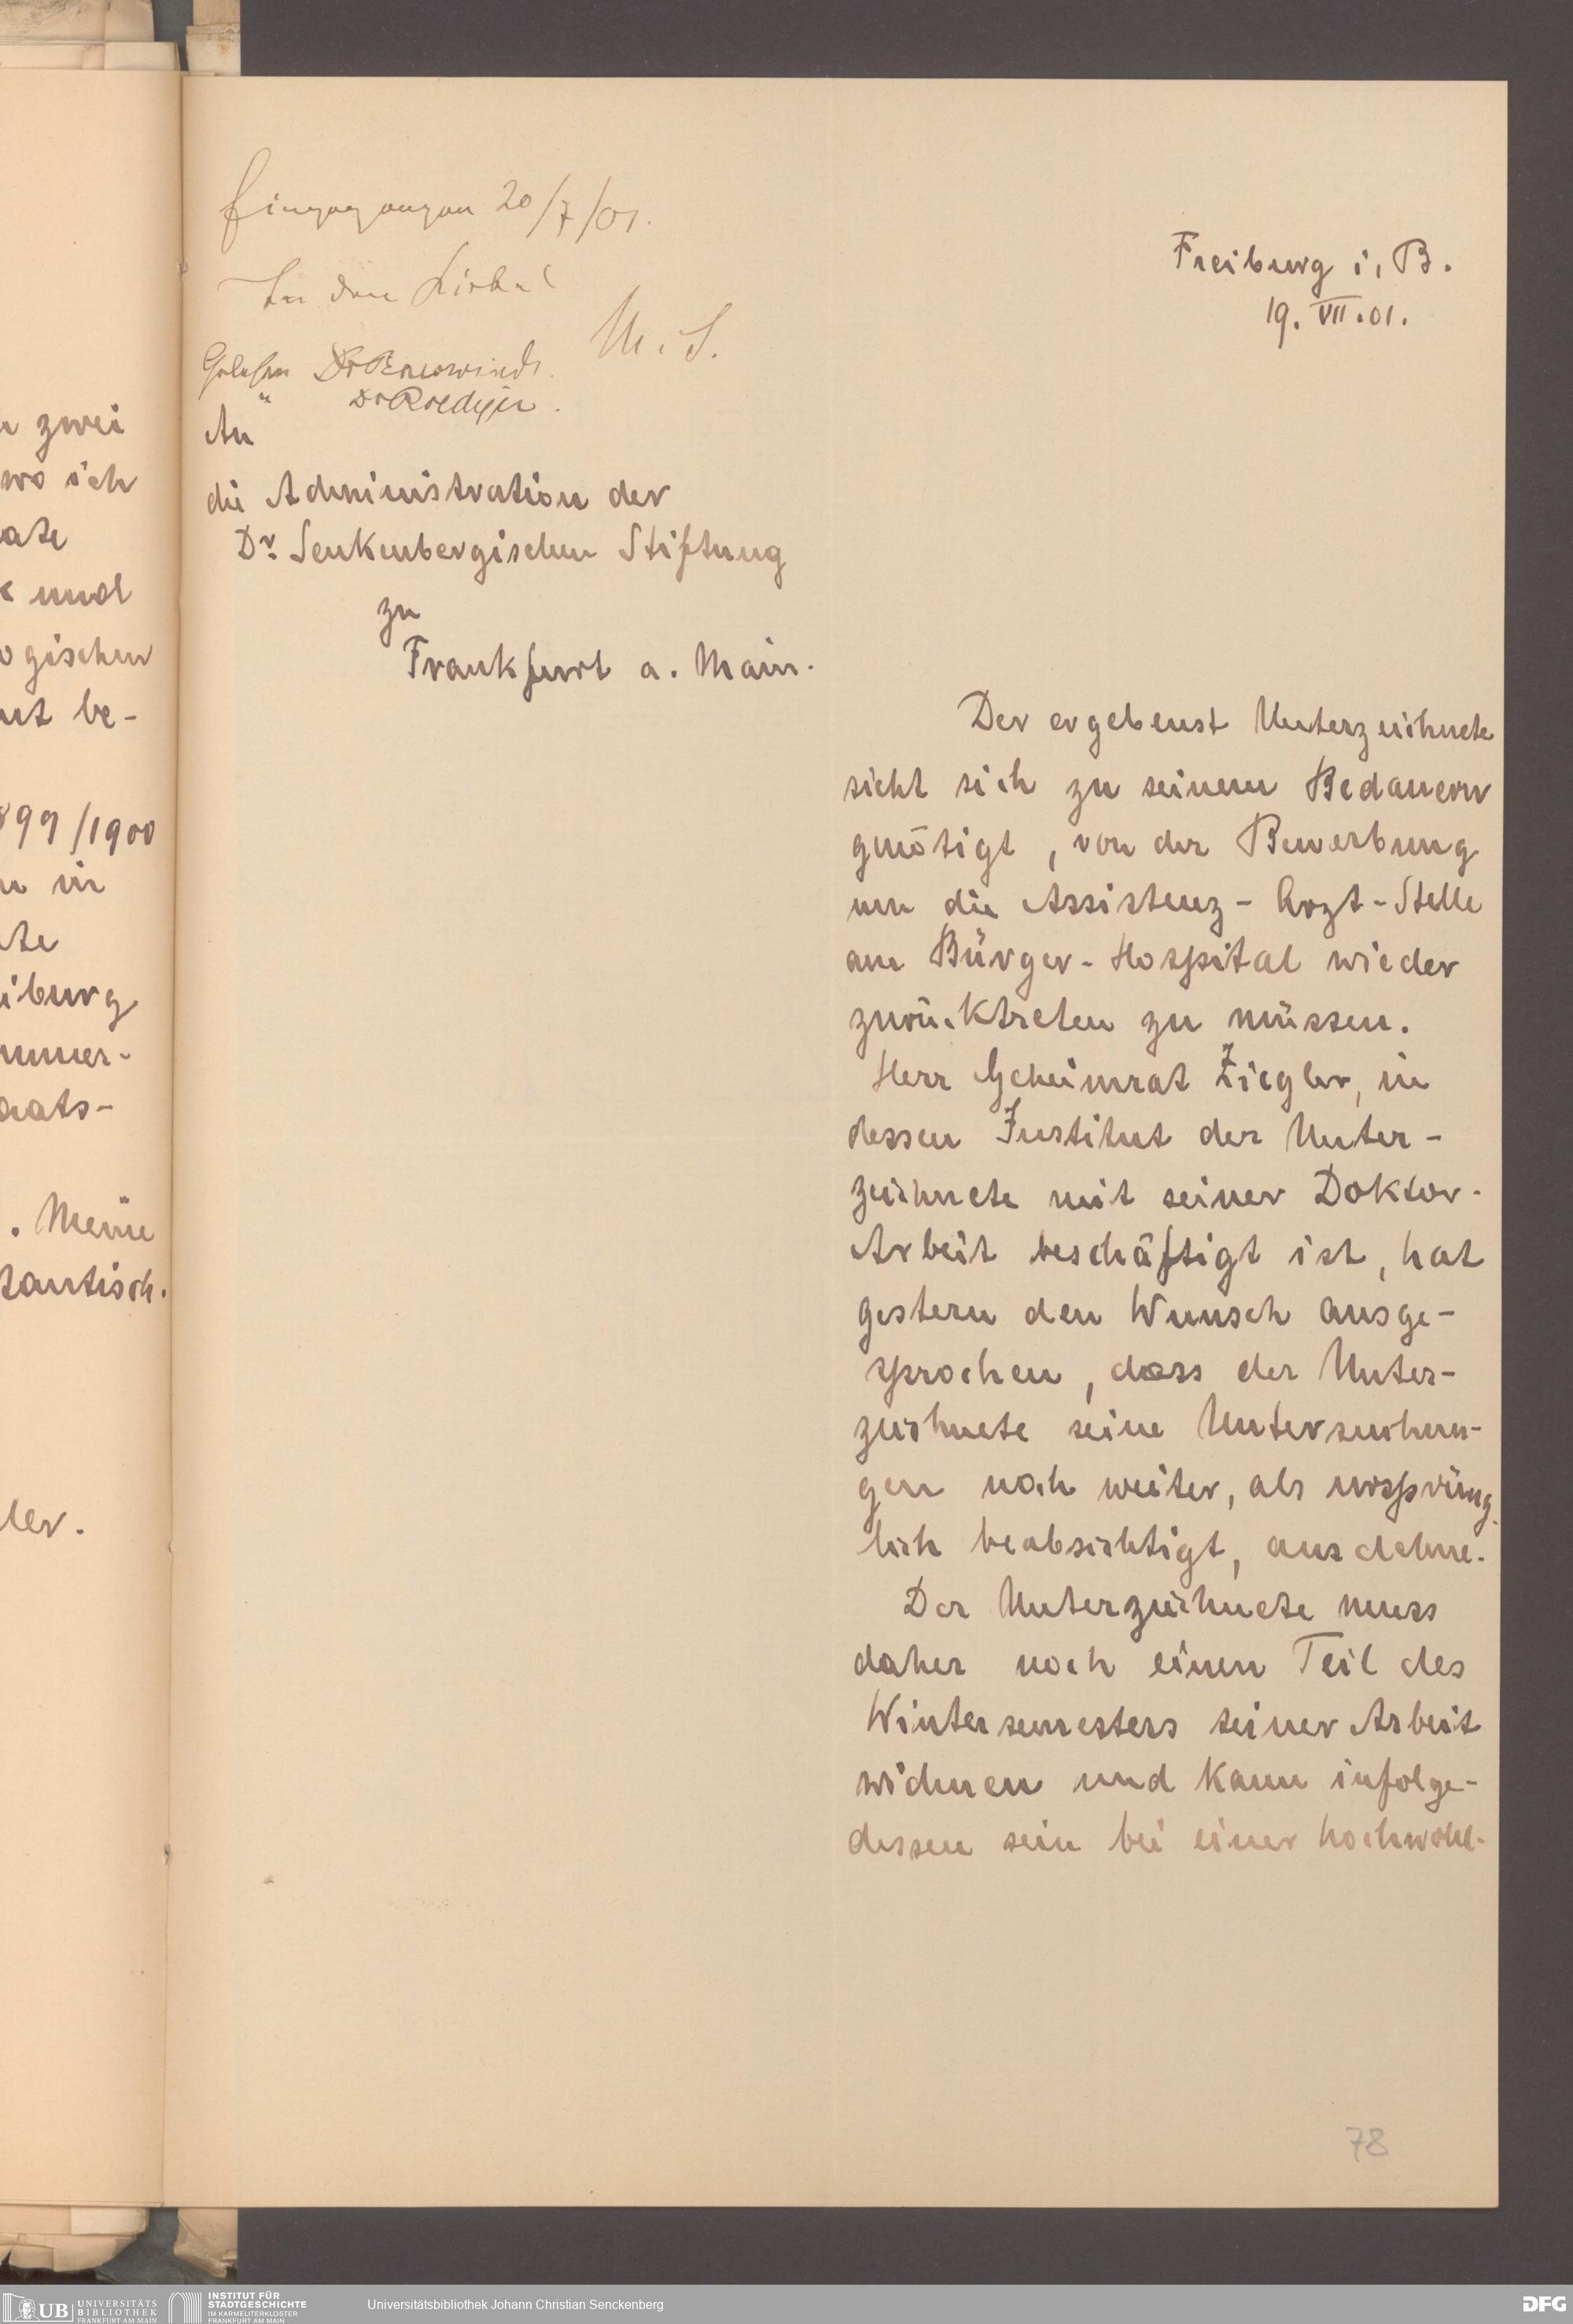 n zwei
wo ich
ate
k und
ogischen
nt be-
899/1900
n in
te
iburg
mmer-
aats-
. Meine
tantisch.
ler.
Eingegangen 20/7/01.
In den Zirkel
M. S.
Gelesen Dr
" Dr Roediger.
Freiburg i. B.
19. VII. 01.
An
die Administration der
Dr. Senkenbergischen Stiftung
zu
Frankfurt a. Main.
Der ergebenst Unterzeichnete
sieht sich zu seinem Bedauern
genötigt, von der Bewerbung
um die Assistenz-Arzt-Stelle
am Bürger-Hospital wieder
zurücktreten zu müssen.
Herr Geheimrat Ziegler, in
dessen Institut der Unter-
zeichnete mit seiner Doktor-
Arbeit beschäftigt ist, hat
gestern den Wunsch ausge-
sprochen, dass der Unter-
zeichnete seine Untersuchun-
gen noch weiter, als ursprüng-
lich beabsichtigt, ausdehne.
Der Unterzeichnete muss
daher noch einen Teil des
Wintersemesters seiner Arbeit
widmen und kann infolge-
dessen sein bei einer hochwohl-
78
UB UNIVERSITÄTS
BIBLIOTHEK
FRANKFURT AM MAIN
INSTITUT FÜR
STADTGESCHICHTE
IM KARMELITERKLOSTER
FRANKFURT AM MAIN
Universitätsbibliothek Johann Christian Senckenberg
DFG